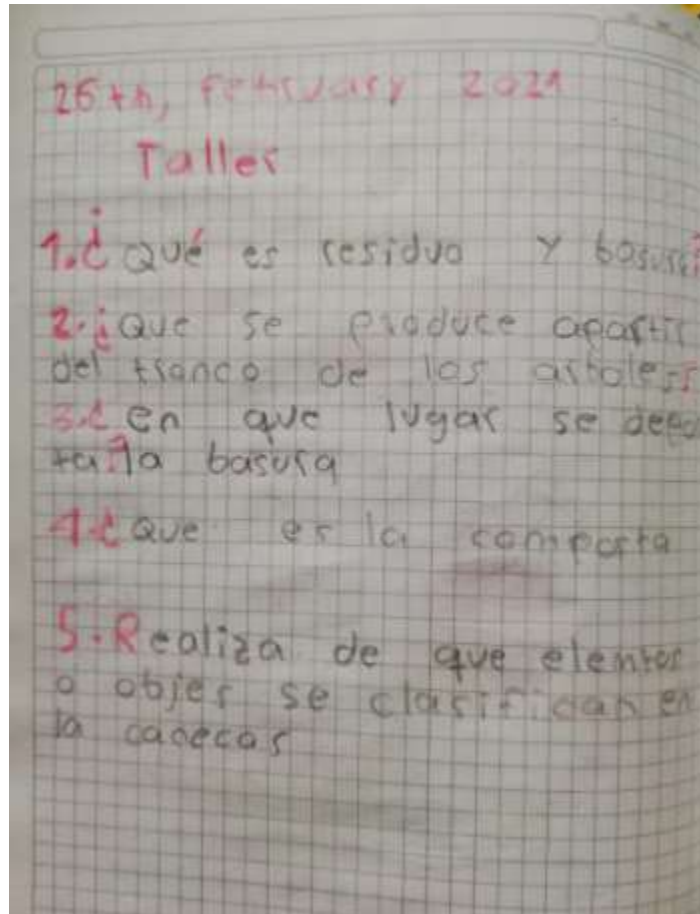 26th, February 2021
Taller
1.¿Qué es residuo y basura?
2.¿Que se produce apartir
del tranco de los arboles?
3.¿en que lugar se depo
ta la basura
4¿que es la composta
5.Realiza de que elemtos
o objes se clasifican en
la canecas